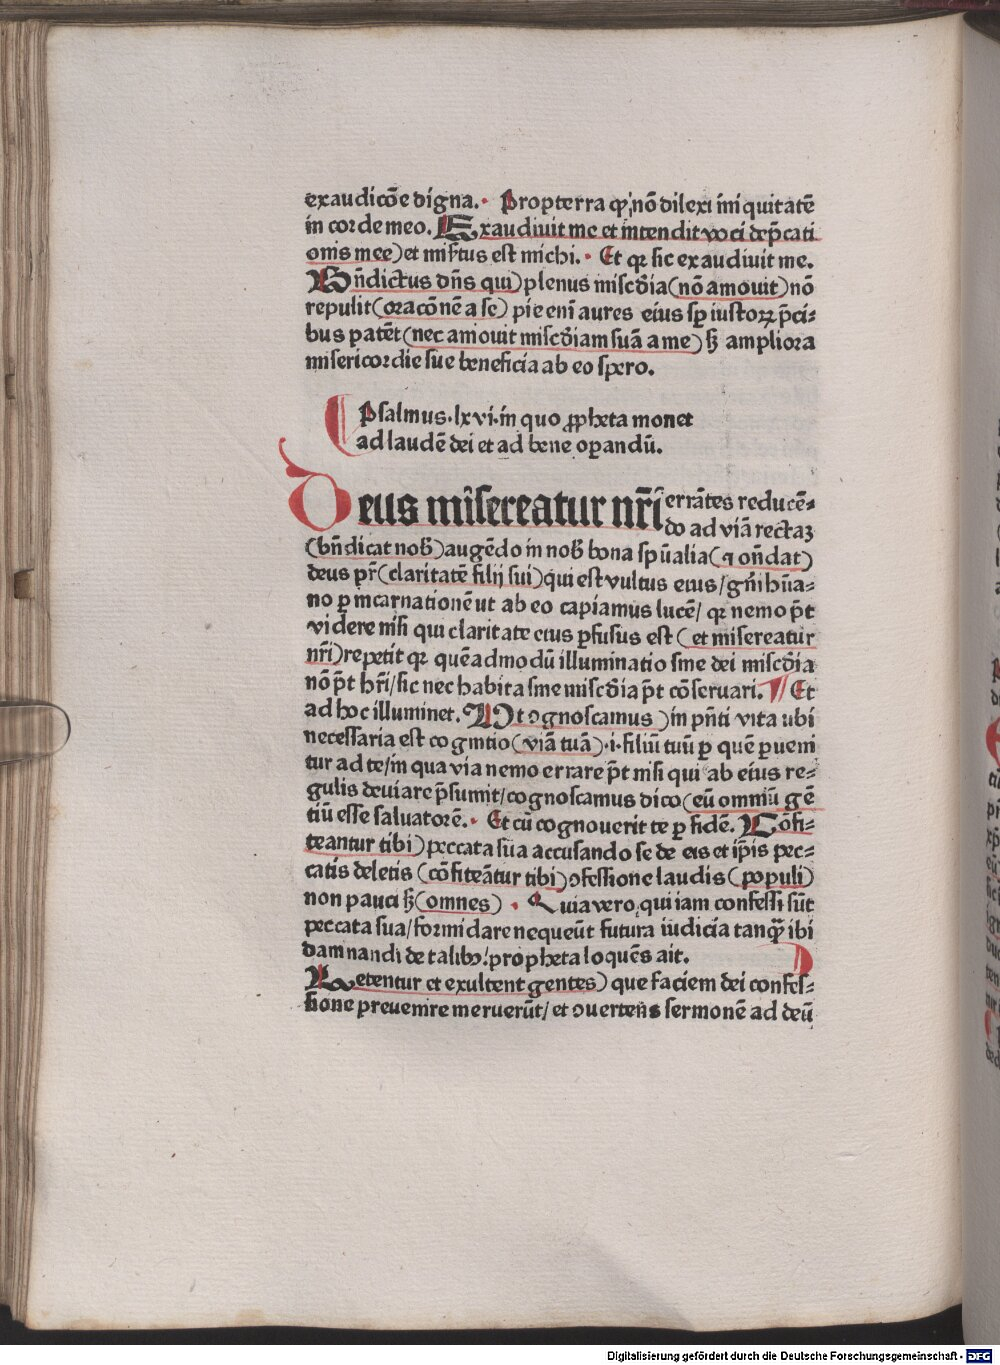 exaudicōe digna. Propterra qꝛ nō dilexi iniquitatē
in corde meo. Exaudiuit me et intendit voci dep̄cati
onis mee) et misr̄tus est michi. Et qꝛ sic exaudiuit me.
Bn̄dictus dn̄s qui) plenus misc̄dia (nō amouit) nō
repulit (oracōnē a se) pie eni᷈ aures eius sꝑ iustoꝝ p̄ci⸗
bus patēt (nec amouit misc̄diam suā a me) sꝫ ampliora
misericordie sue beneficia ab eo spero.
Psalmus. lxvi. in quo ꝓpheta monet
ad laudē dei et ad bene oꝑandū.
Deus misereatur nr̄i errātes reducē⸗
do ad viā rectaꝫ
(bn̄dicat nob̄) augēdo in nob̄ bona sp̄ualia (⁊ on̄dat)
deus pr̄ (claritatē filij sui) qui est vultus eius/ gn̄i hūa⸗
no ꝑ incarnationē ut ab eo capiamus lucē/ qꝛ nemo p̄t
videre nisi qui claritate eius ꝑfusus est (et misereatur
nr̄i) repetit qꝛ quēadmodū illuminatio sine dei misc̄dia
nō p̄t hr̄i/ sic nec habita sine misc̄dia p̄t cōseruari. ¶ Et
ad hoc illuminet. Ut ꝯgnoscamus) in pn̄ti vita ubi
necessaria est cognitio (viā tuā) .i. filiū tuū ꝑ quē ꝑueni
tur ad te/ in qua via nemo errare p̄t nisi qui ab eius re⸗
gulis deuiare p̄sumit/ cognoscamus dico (eū omniū gē
tiū esse saluatorē. Et cū cognouerit te ꝑ fidē. Cōfi⸗
teantur tibi) peccata sua accusando se de eis et ip̄is pec⸗
catis deletis (cōfiteātur tibi) ꝯfessione laudis (populi)
non pauci sꝫ (omnes) . Quia vero, qui iam confessi sūt
peccata sua/ formidare nequeūt futura iudicia tanqꝫ ibi
damnandi de talibꝫ! propheta loquēs ait.
Letentur et exultent gentes) que faciem dei confes⸗
sione preuenire meruerūt/ et ꝯuertens sermonē ad deū
Digitalisierung gefördert durch die Deutsche Forschungsgemeinschaft - DFG